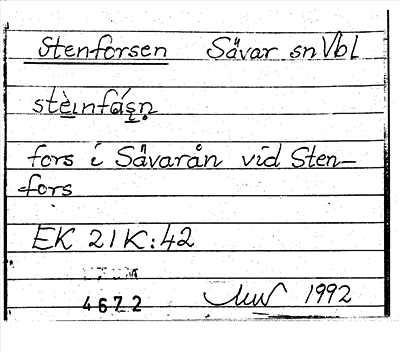 Stenforsen Sävar sn Vbl
stèi̲nfás̨ṇ
fors i Sävarån vid Sten-
fors
EK 21K:42
4672
1992